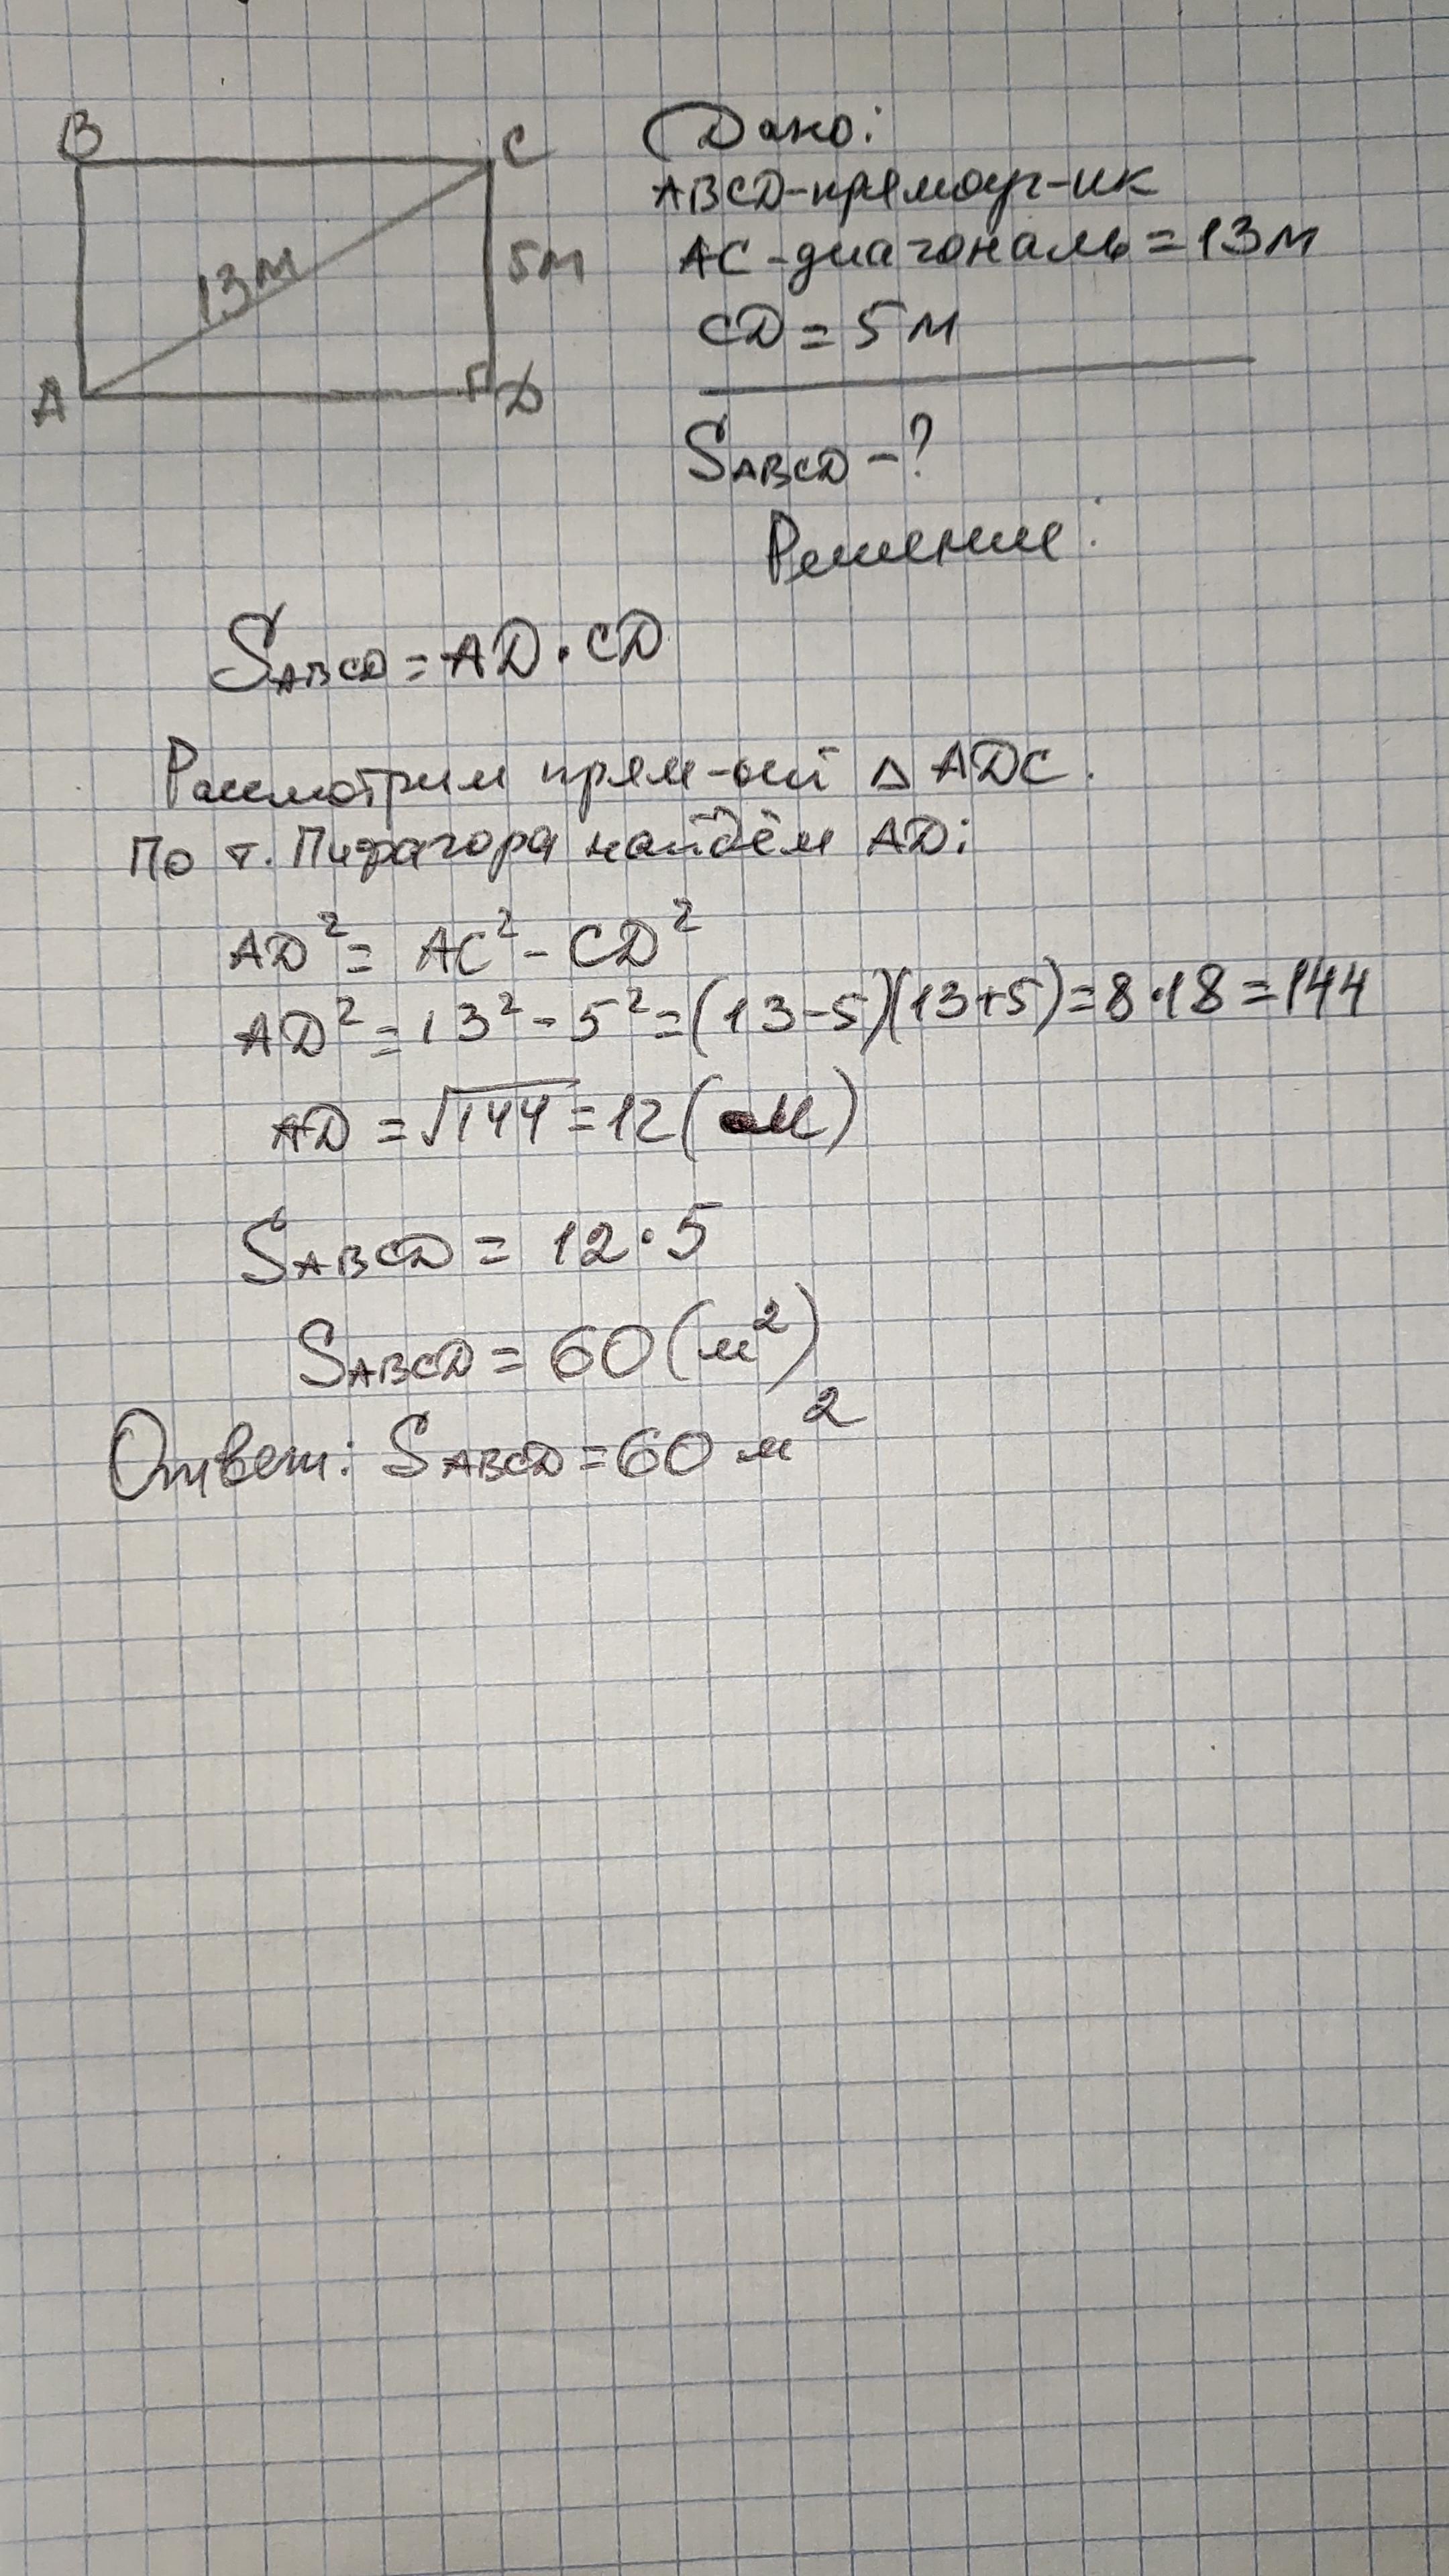 B
C
13м
5м
A
D
Дано:
ABCD-прямоуг-ик
AC-диагональ=13м
CD=5м
SABCD-?
Решение:
SABCD=AD·CD
Рассмотрим прям-ый △ADC.
По т. Пифагора найдём AD:
AD²=AC²-CD²
AD²=13²-5²=(13-5)(13+5)=8·18=144
AD=√144=12(м)
SABCD=12·5
SABCD=60(м²)
Ответ: SABCD=60 м²